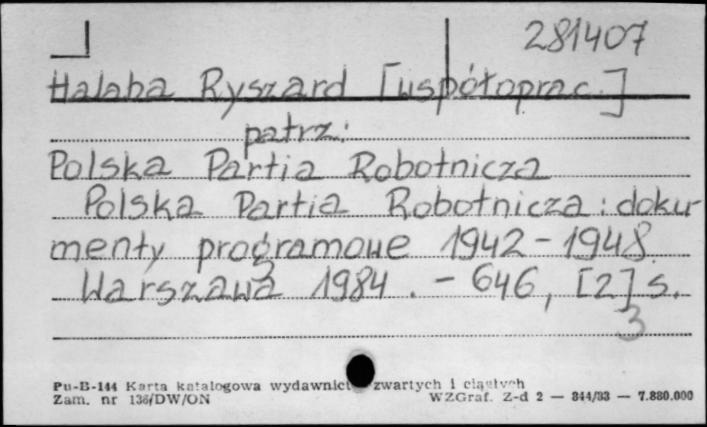 281407
Halaba Ryszard [współoprac.]
patrz:
Polska Partia Robotnicza
Polska Partia Robotnicza : doku-
menty programowe 1942-1948.
Warszawa 1984. - 646, [2] s.
3
Pu-B-144 Karta katalogowa wydawnict zwartych i ciągłych
Zam. nr 136/DW/ON WZGraf. Z-d 2 — 844/83 — 7.880.000